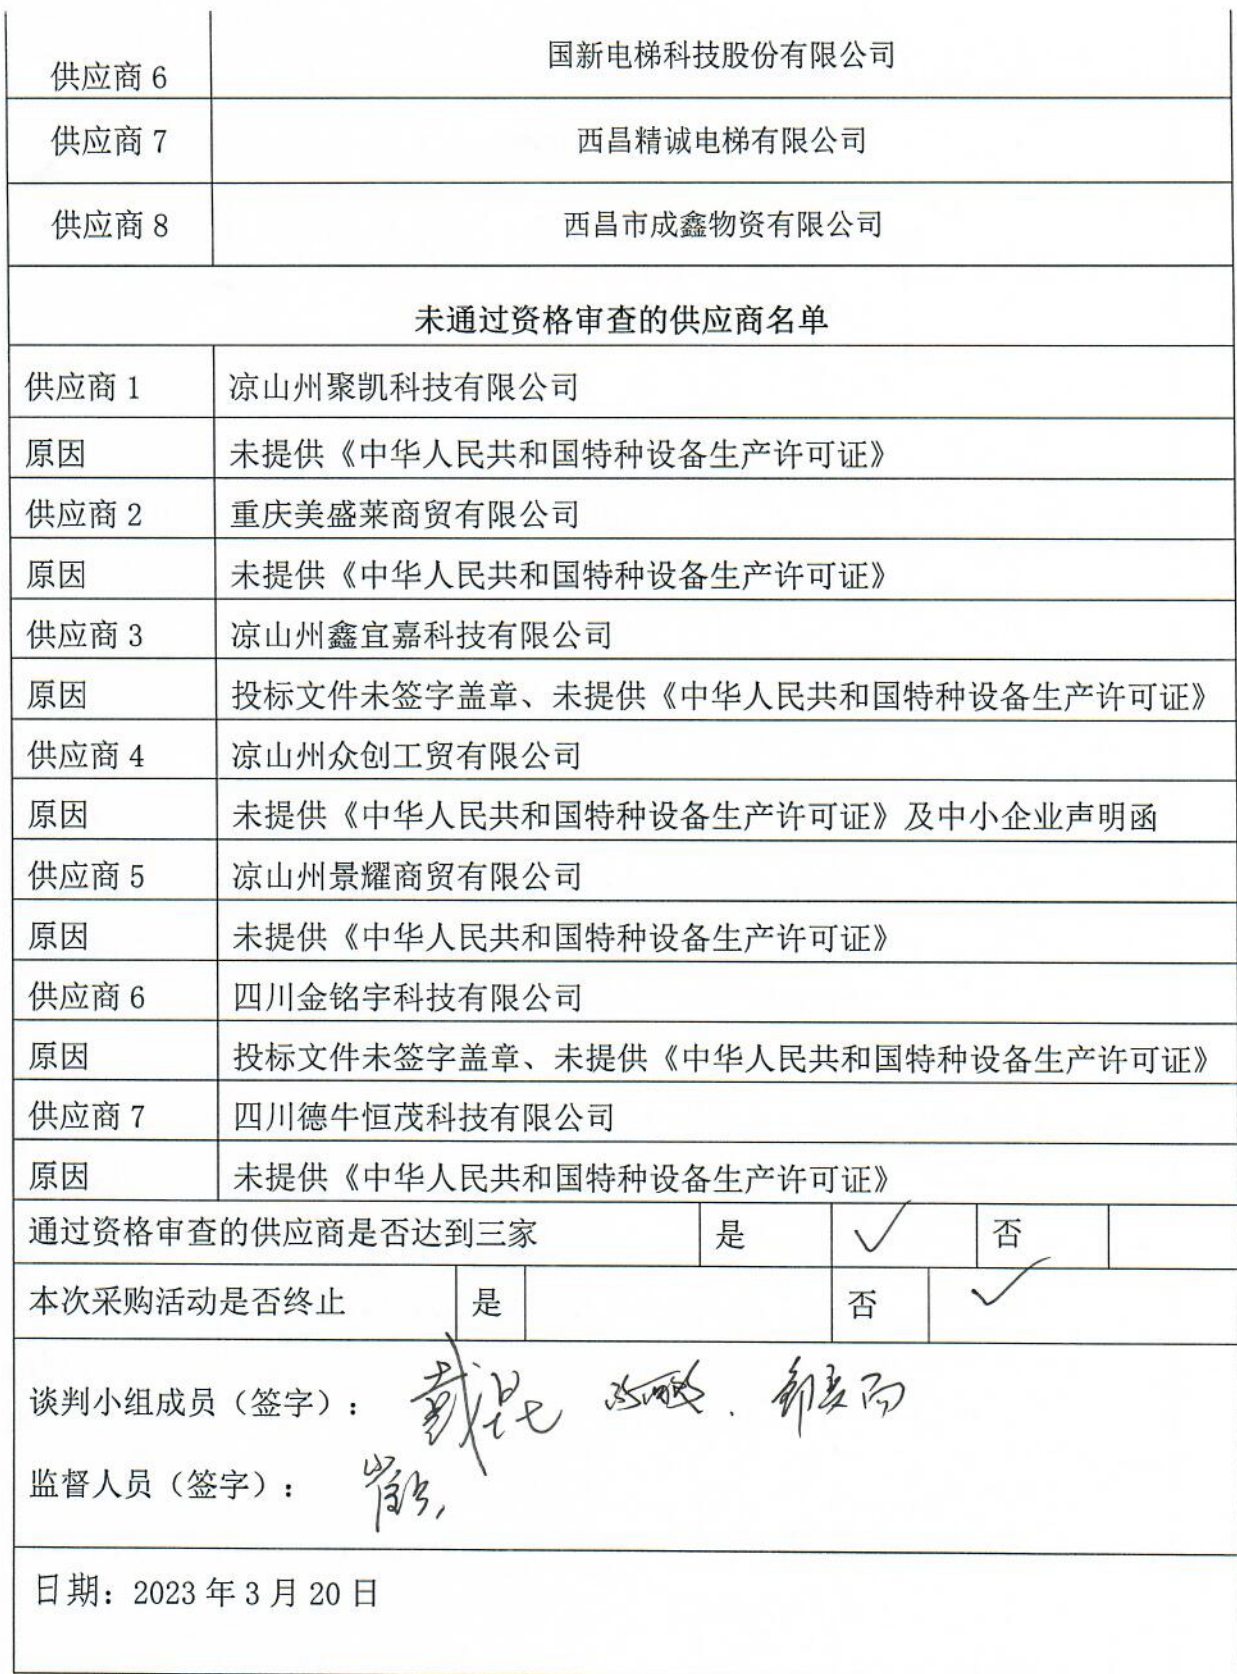 供应商 6 国新电梯科技股份有限公司
供应商 7 西昌精诚电梯有限公司
供应商 8 西昌市成鑫物资有限公司
未通过资格审查的供应商名单
供应商 1 凉山州聚凯科技有限公司
原因 未提供《中华人民共和国特种设备生产许可证》
供应商 2 重庆美盛莱商贸有限公司
原因 未提供《中华人民共和国特种设备生产许可证》
供应商 3 凉山州鑫宜嘉科技有限公司
原因 投标文件未签字盖章、未提供《中华人民共和国特种设备生产许可证》
供应商 4 凉山州众创工贸有限公司
原因 未提供《中华人民共和国特种设备生产许可证》及中小企业声明函
供应商 5 凉山州景耀商贸有限公司
原因 未提供《中华人民共和国特种设备生产许可证》
供应商 6 四川金铭宇科技有限公司
原因 投标文件未签字盖章、未提供《中华人民共和国特种设备生产许可证》
供应商 7 四川德牛恒茂科技有限公司
原因 未提供《中华人民共和国特种设备生产许可证》
通过资格审查的供应商是否达到三家 是 ✓ 否
本次采购活动是否终止 是 否 ✓
谈判小组成员（签字）： 戴昆
监督人员（签字）：
日期：2023 年 3 月 20 日